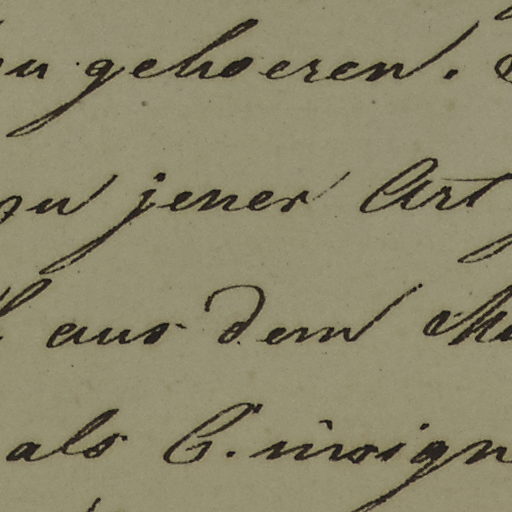 zu gehoeren.
zu jener Art
aus dem
als C. insign